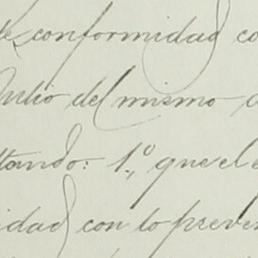 de conformidad co
Julio del mismo a
tando: 1.º que el e
idad con lo preve